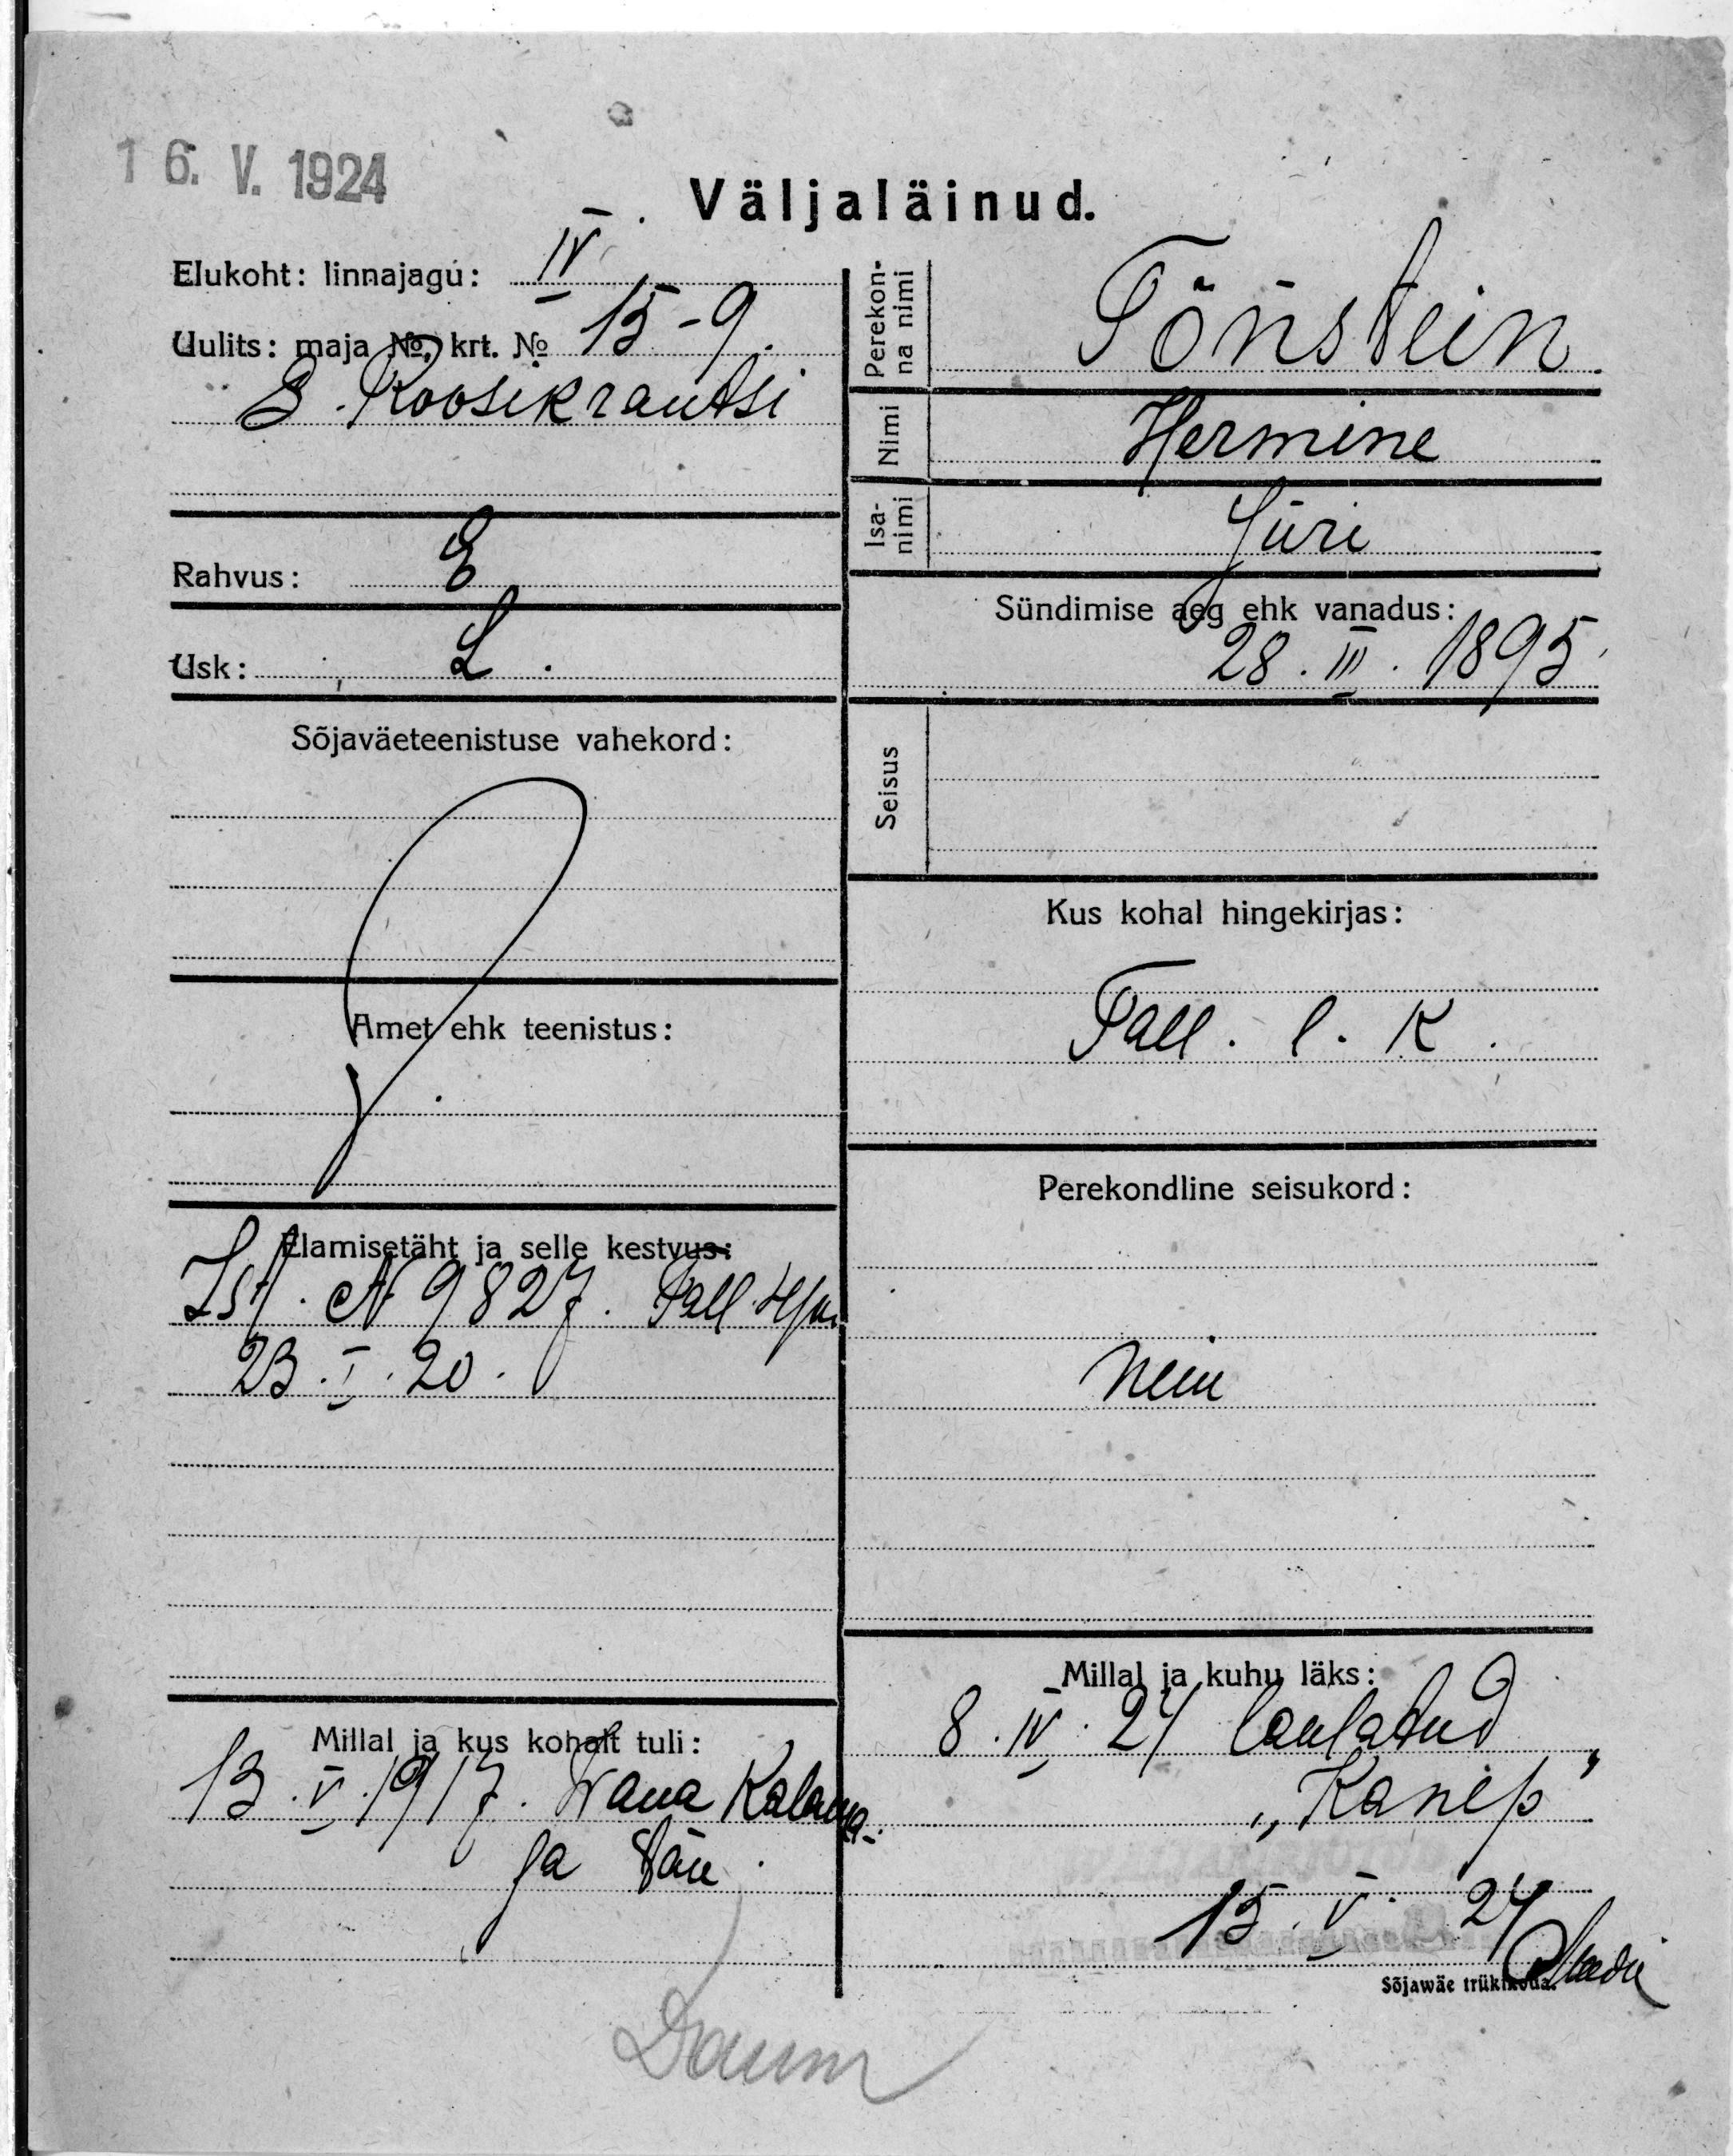 16. V. 1924
Väljaläinud.
Elukoht: linnajagu: IV
Uulits: maja №, krt. № 15-9.
E. Roosikrantsi
Rahvus: E
Usk: L.
Sõjaväeteenistuse vahekord:
Amet ehk teenistus:
Elamisetäht ja selle kestvus:
Ist. N 9827. Tall.
23.I.20.
Millal ja kus kohalt tuli:
13.V.1917. Wana Kalama-
ja tän.
Perekon-
na nimi Tönstein
Nimi Hermine
Isa-
nimi Jüri
Sündimise aeg ehk vanadus:
28. III. 1895.
Seisus
Kus kohal hingekirjas:
Tall. l. K.
Perekondline seisukord:
neiu
Millal ja kuhu läks:
8.IV.24 laulatud
„Kanep"
15.V.24
Sõjawäe trükikoda.
Daum